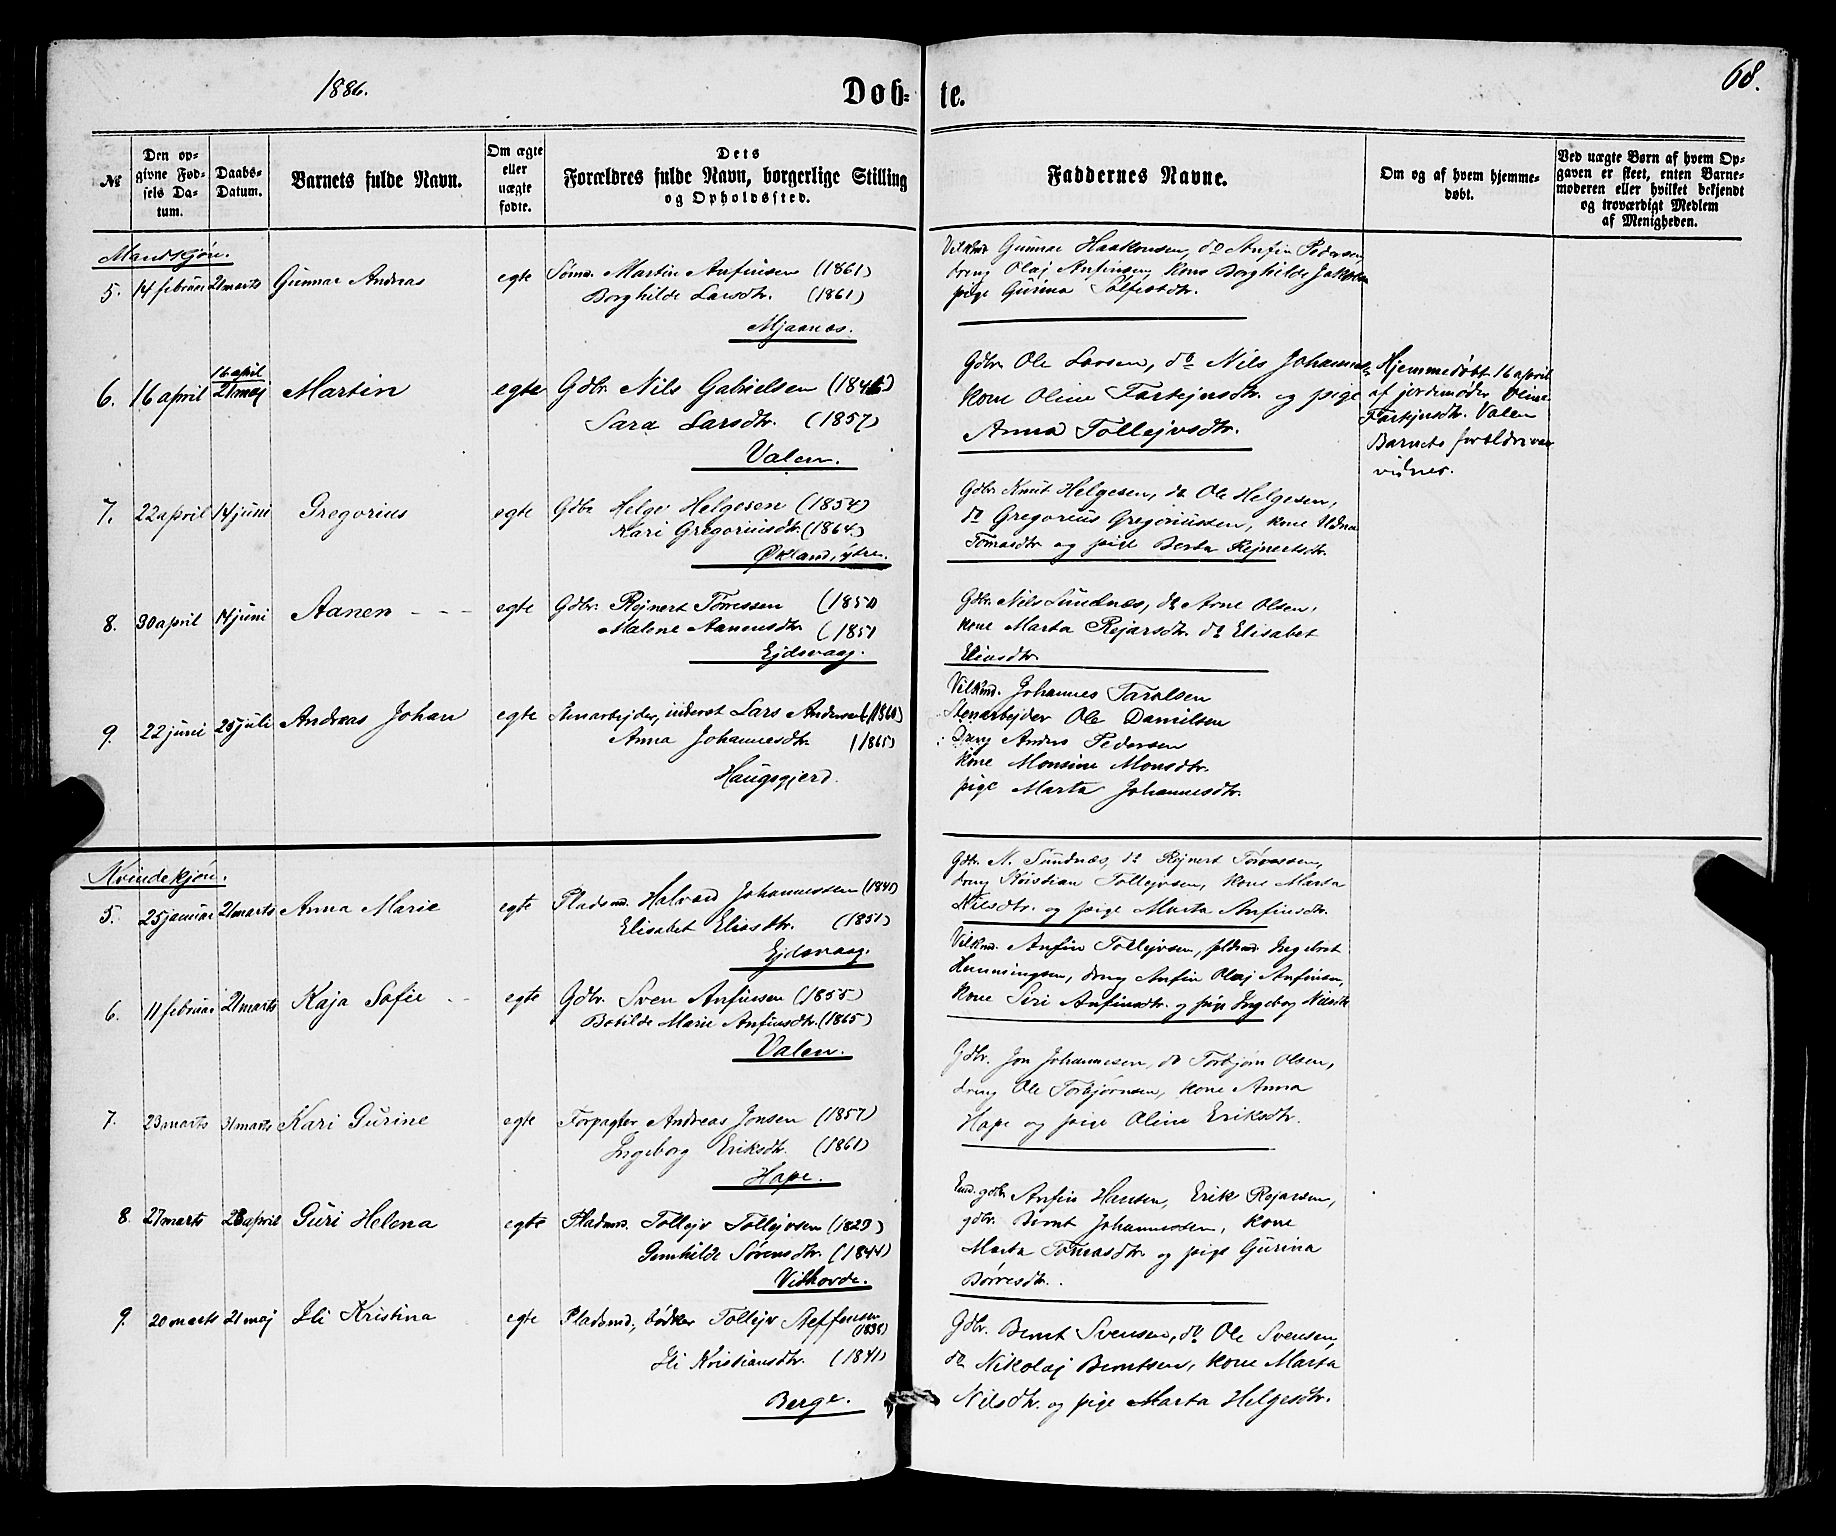 1886.
Døb-
te.
68.
№
Den op-
givne Fød-
sels Da-
tum.
Daabs-
Datum.
Barnets fulde Navn.
Om ægte
eller
uægte
fødte.
Dets
Forældres fulde Navn, borgerlige Stilling
og Opholdssted.
Faddernes Navne.
Om og af hvem hjemme-
døbt.
Ved uægte Børn af hvem Op-
gaven er skeet, enten Barne-
moderen eller hvilket bekjendt
og troværdigt Medlem
af Menigheden.
Mandkjøn.
5. 14 februar 21 marts Gunnar Andreas egte Martin Anfinsen (1861)
Borghilde Larsdtr. (1861)
Mjaanes.
Gunnar Haakonsen, do Anfin Pedersen,
dreng Olaj Anfinsen, kone Borghilde
pige Gurina
6. 16 april 16 april
21 maj Martin egte Gdbr. Nils Gabrielsen
Sara Larsdtr. (1857)
Valen.
Gdbr. Ole Larsen, do Nils
kone Oline Torkejnsdtr. og pige
Anna Tollejvsdtr.
Hjemmedøbt 16 april
af jordemoder Oline
Torkejnsdtr. Valen
Barnets forældre var
vidner.
7. 22 april 14 juni Gregorius egte Gdbr. Helge Helgesen (1854)
Kari Gregoriusdtr. (1864)
Økland, ytre.
Gdbr. Knut Helgesen, do Ole Helgesen,
do Gregorius Gregoriussen, kone
Tomasdtr. og pige Berta Rejnertsdtr.
8. 30 april 14 juni Aanen - - - egte Gdbr. Rejnert Tørressen
Malene Aanensdtr.
Ejdsvaag.
Gdbr. Nils Sundnæs, do Arne Olsen,
kone Marta Rejarsdtr. do Elisabet
Eliasdtr.
9. 22 juni 25 juli Andreas Johan egte Stenarbejder, inderst Lars Andersen (1860)
Anna Johannesdtr. (1865)
Haugsgjerd.
Vilkmd. Johannes Taralsen
Stenarbejder Ole Danielsen
Dreng Anders Pedersen
kone Monsine Monsdtr.
pige Marta Johannesdtr.
Kvindekjøn.
5. 25 januar 21 marts Anna Marie egte Pladsmd. Halvard Johannessen
Elisabet Eliasdtr. (1851)
Ejdsvaag.
Gdbr. N. Sundnæs, do Rejnert Tørressen,
dreng Kristian Tollejvsen, kone Marta
Nilsdtr. og pige Marta Anfinsdtr.
6. 11 februar 21 marts Kaja Sofie - - egte Gdbr. Sven Anfinsen (1855)
Botilde Marie Anfinsdtr. (1865)
Valen.
Vilkmd. Anfin Tollejvsen, Ingebret
Henningsen, dreng Anfin Olaj Anfinsen,
kone Siri Anfinsdtr. og pige Ingeborg Nilsdtr.
7. 23 marts 31 marts Kari Gurine egte Forpagter Andreas Jonsen (1857)
Ingeborg Eriksdtr. (1861)
Hope.
Gdbr. Jon Johannesen, do Torbjørn Olsen,
dreng Ole Torbjørnsen, kone Anna
Hope og pige Oline Eriksdtr.
8. 27 marts 26 april Guri Helena egte Pladsmd. Tollejv Tollejvsen (1829)
Gunhilde Sørensdtr. (1844)
Vidhovde.
gdbr. Anfin Hansen, Erik Rejarsen,
gdbr. Bernt Johannessen, kone
Marta Tomasdtr. og pige Gurina
Børresdtr.
9. 20 marts 21 maj Ili Kristina egte Pladsmd., bødker Tollejv Steffensen
(1838)
Ili Kristiansdtr. (1841)
Berge.
Gdbr. Bernt Svensen, do Ole Svensen,
do Nikolaj Berntsen, kone Marta
Nilsdtr. og pige Marta Helgesdtr.